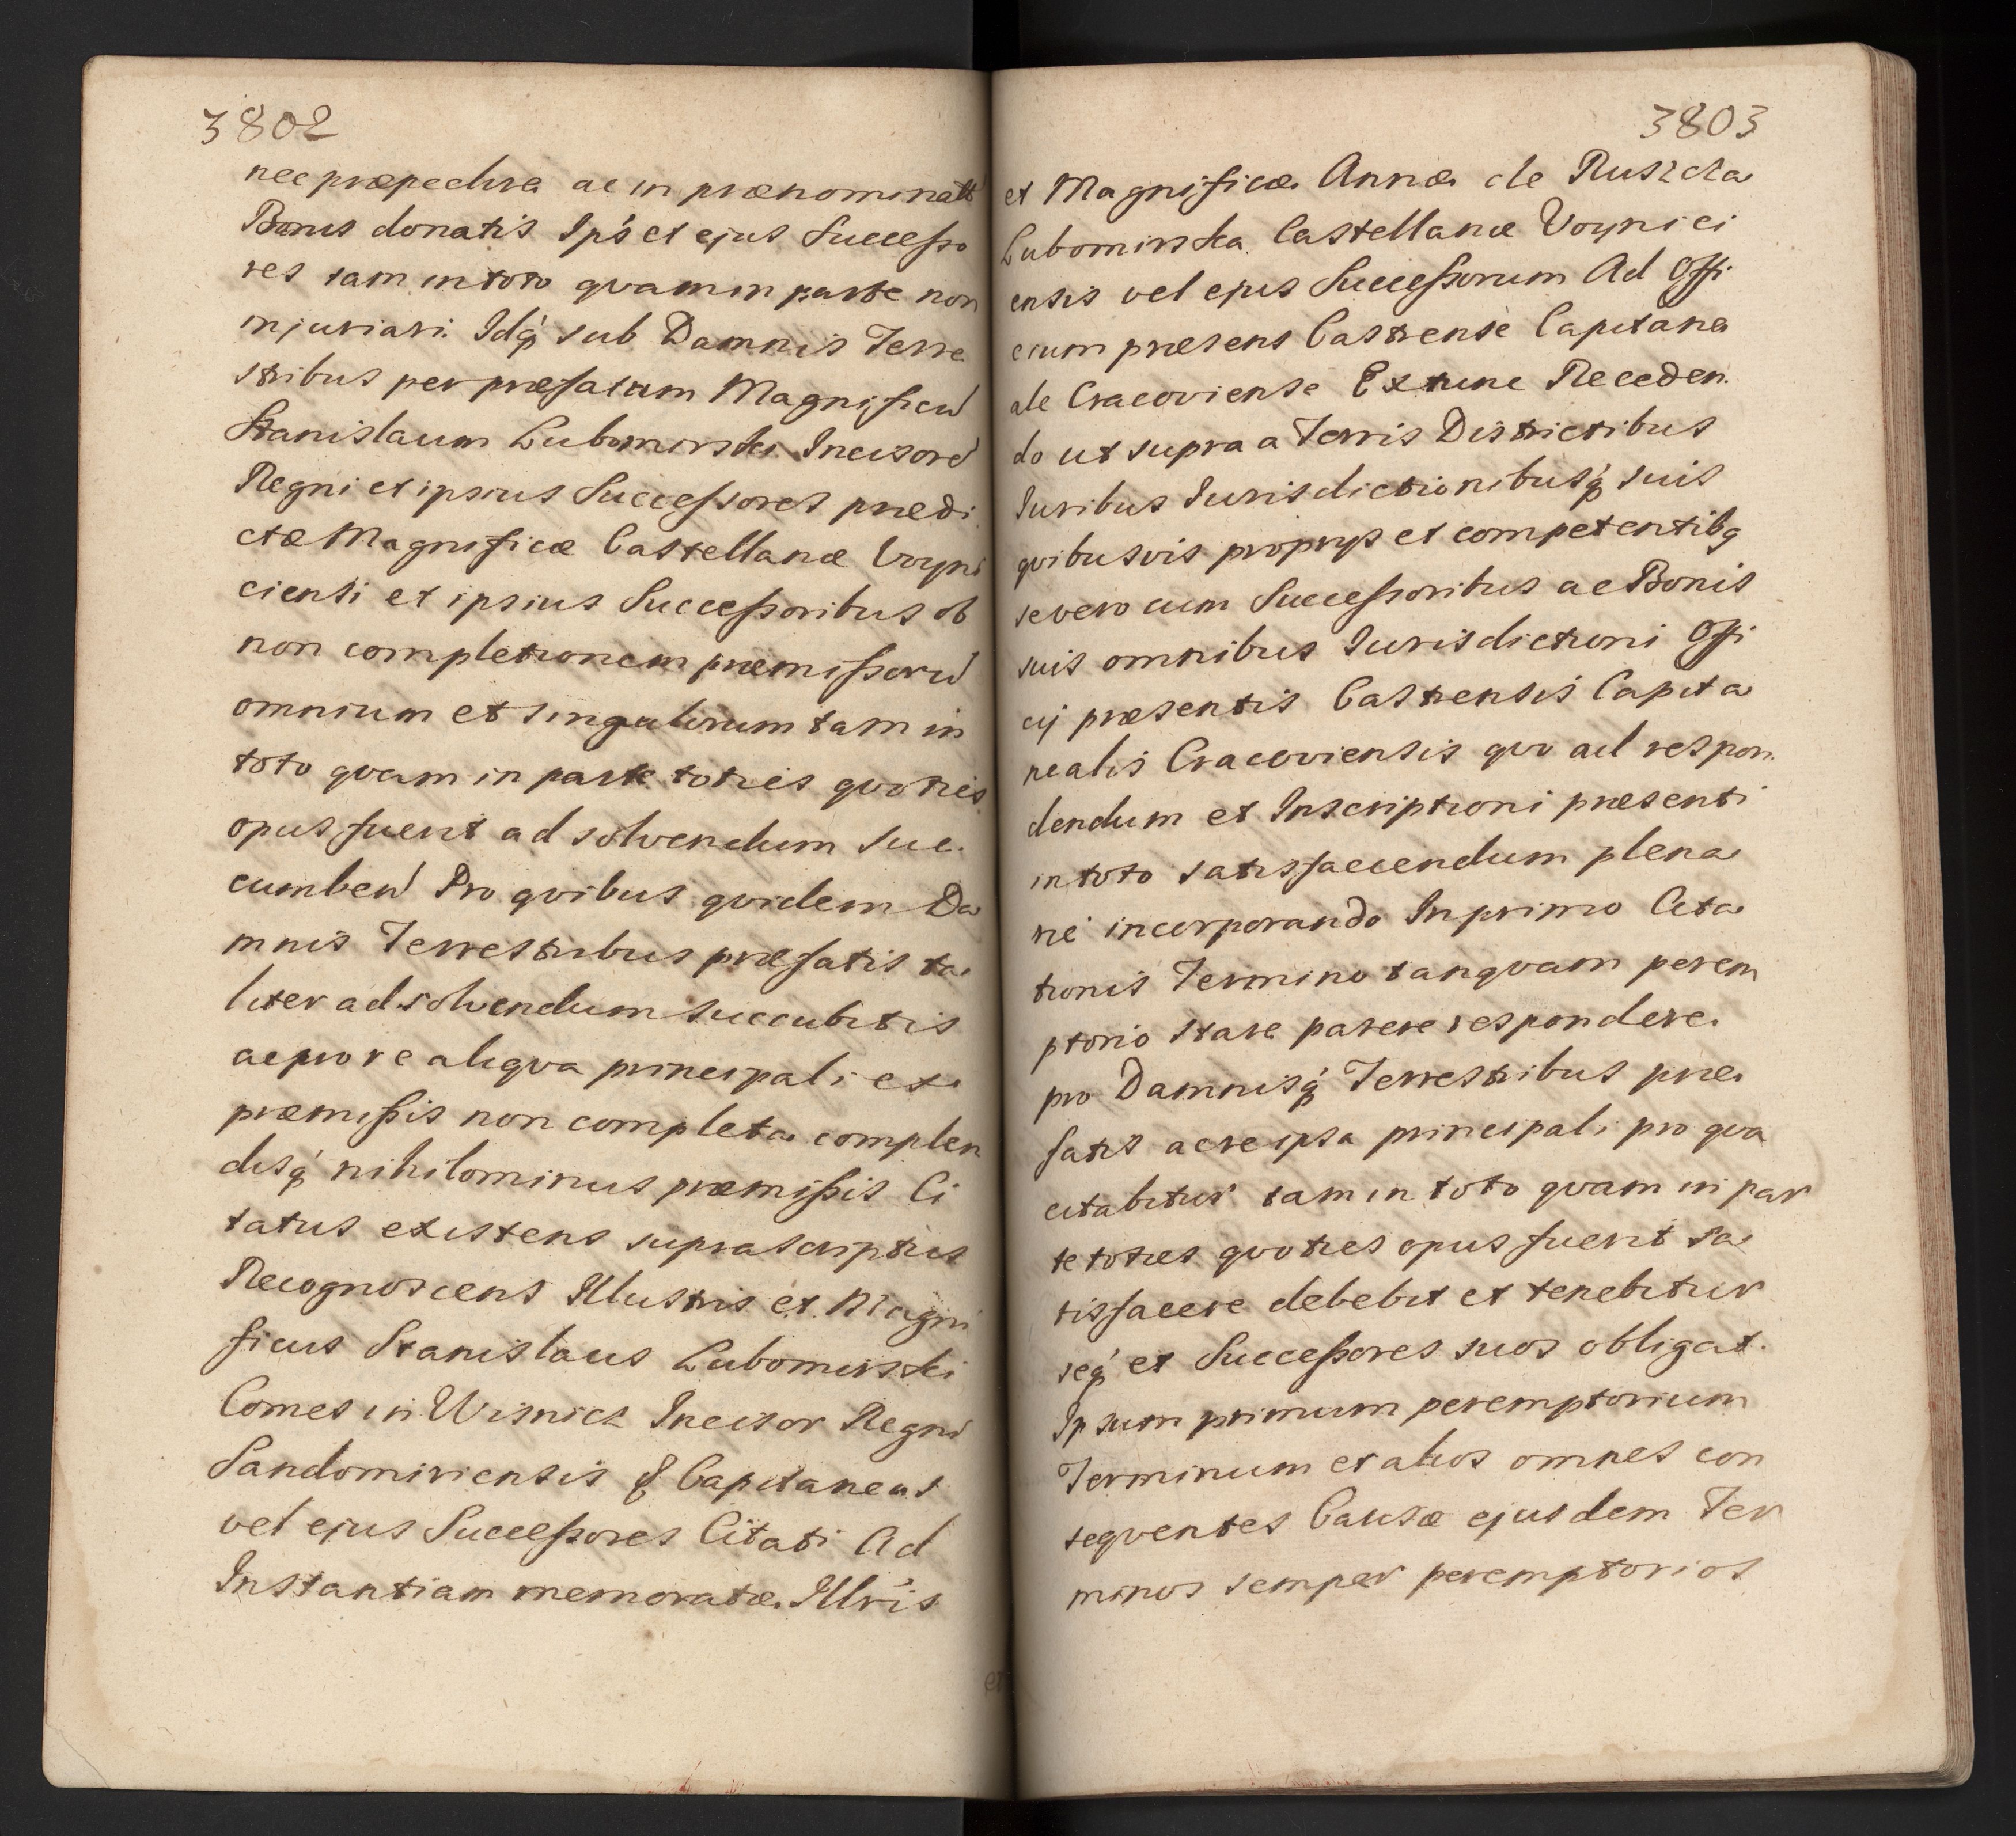 3802
nec præpedire ac in prænominatt
Bonis donatis Ips's et ejus Successo
res tam in toto qvam in parte non
injuriari. Idq́ sub Damnis Terre
stribus per præfatum Magnificū
Stanislaum Lubomirski Incisorē
Regni et ipsius Successores prædi
ctæ Magnificæ Castellanæ Voyni
ciensi et ipsius Successoribus ob
non completionem præmissorū
omnium et singulorum tam in
toto qvam in parte toties qvoties
opus fuerit ad solvendum suc
cumben̄ Pro qvibus qvidem Da
mnis Terrestribus præfatis ta
liter ad solvendum succubitis
ac pro re aliqva principali ex
præmissis non completa complen
disq́ nihilominus præmissis Ci
tatus existens suprascriptus
Recognoscens Illustris et Magni
ficus Stanislaus Lubomirski
Comes in Wisnicz Incisor Regni
Sandomiriensis & Capitaneus
vel ejus Successores Citati Ad
Instantiam memoratæ Illris
3803
et Magnificæ Annæ de Ruszcza
Lubomirska Castellanæ Voynici
ensis vel ejus Successorum Ad Offi
cium præsens Castrense Capitane
ale Cracoviense Extunc Receden
do ut supra a Terris Districtibus
Iuribus Iurisdictionibusq́ suis
qvibusvis proprys et competentibq
se vero cum Successoribus ac Bonis
suis omnibus Iurisdictioni Offi
cij præsentis Castrensis Capita
nealis Cracoviensis qvo ad respon
dendum et Inscriptioni præsenti
in toto satisfaciendum plena
rie incorporando In primo Cita
tionis Termino tanqvam perem
ptorio stare parere respondere
pro Damnisq́ Terrestribus præ
fatis ac re ipsa principali pro qva
citabitur tam in toto qvam in par
te toties qvoties opus fuerit sa
tisfacere debebit et tenebitur
seq́ et Successores suos obligat.
Ipsum primum peremptorium
Terminum et alios omnes con
seqventes Causæ ejusdem Ter
minos semper peremptorios